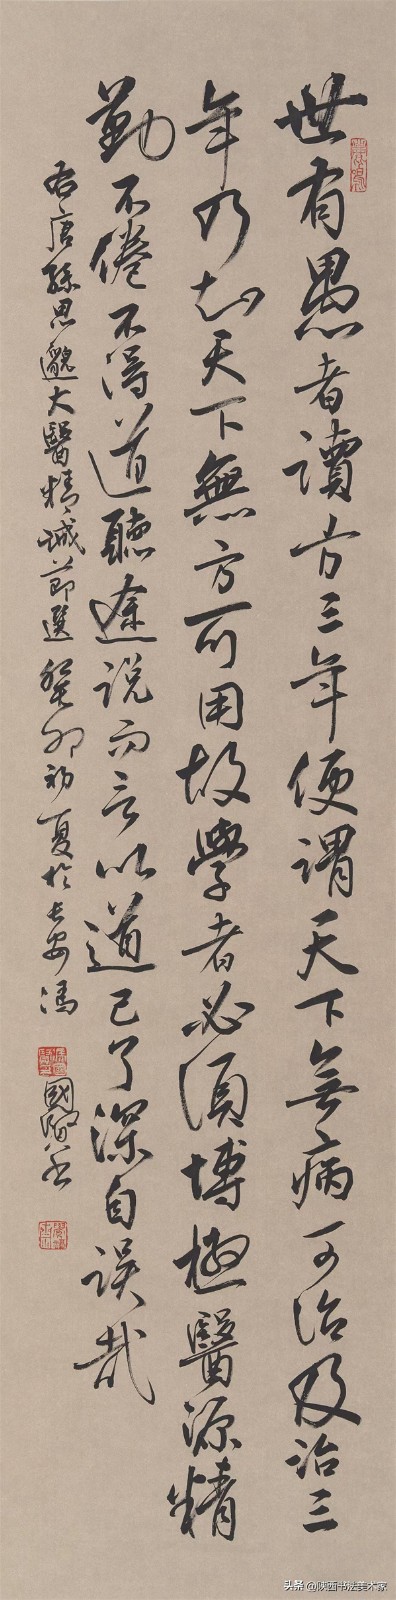 世有愚者讀方三年便謂天下無病可治及治三
年乃知天下無方可用故學者必須博極醫源精
勤不倦不得道聽途説而言以道已了深自誤哉
右唐孫思邈大醫精誠節選癸卯初夏於長安馮國
头条 @陕西书法美术家